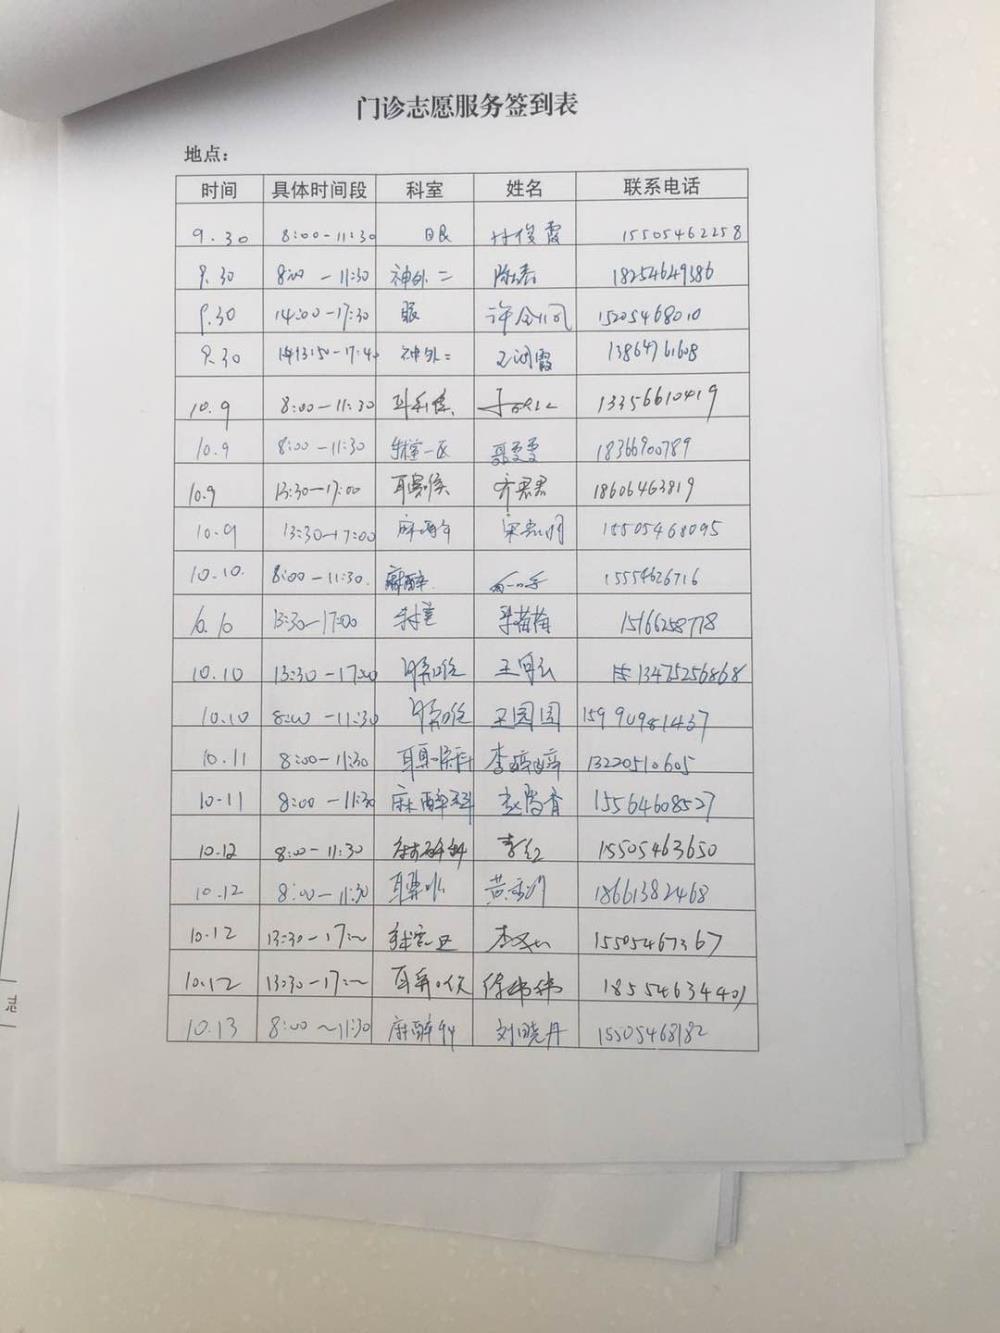 门诊志愿服务签到表
地点：
时间 具体时间段 科室 姓名 联系电话
9.30 8:00-11:30 眼 付俊霞 15505462258
9.30 8:00-11:30 神外二 18254649386
9.30 14:00-17:30 眼 15205468010
9.30 13:50-17:40 神外二 王闰霞 13864761608
10.9 8:00-11:30 13356610419
10.9 8:00-11:30 18366900789
10.9 13:30-17:00 耳鼻喉 齐君君 18606463819
10.9 13:30-17:00 15505468095
10.10. 8:00-11:30. 麻醉. 15554626716
10.10 13:30-17:00 15166258778
10.10 13:30-17:00 13475256868
10.10 8:00-11:30 王园园 15990981437
10.11 8:00-11:30 耳鼻喉科 李婷婷 13220510605
10-11 8:00-11:30 麻醉科 15564608527
10.12 8:00-11:30 麻醉科 李红 15505463650
10.12 8:00-11:30 18661382468
10.12 13:30-17:~ 15505467367
10.12 13:30-17:~ 徐伟伟 18554634401
10.13 8:00~11:30 麻醉科 刘晓丹 15505468182